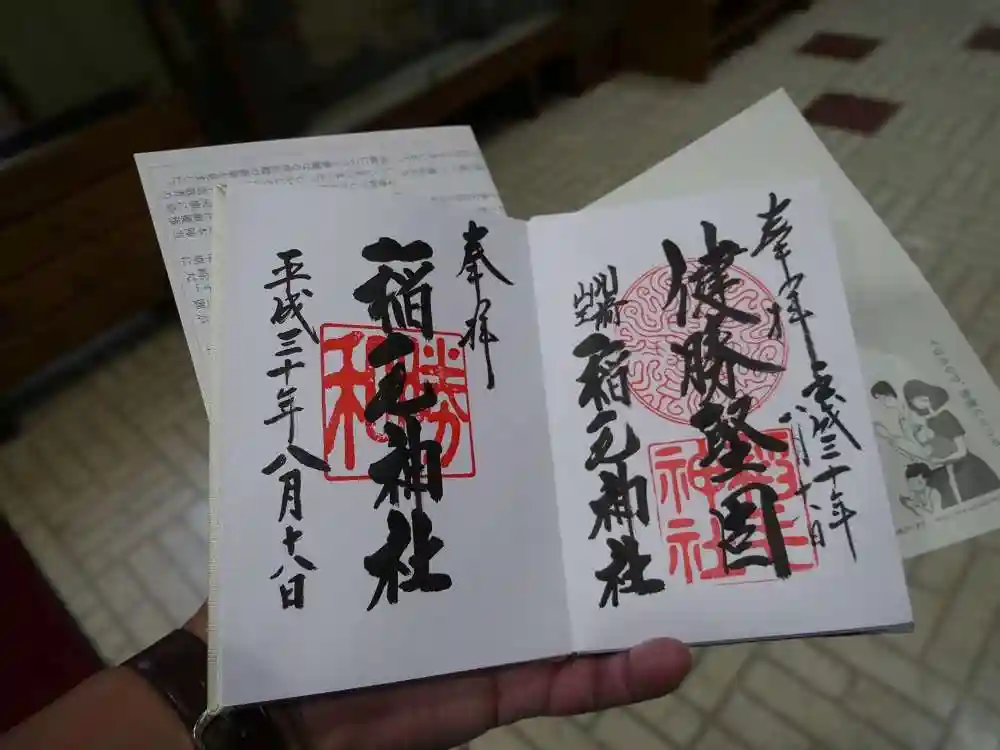 奉拝
平成三十年
八月十八日
健勝堅固
稲毛
神社
川崎
稲毛神社
奉拝
稲毛神社
勝
和
平成三十年八月十八日